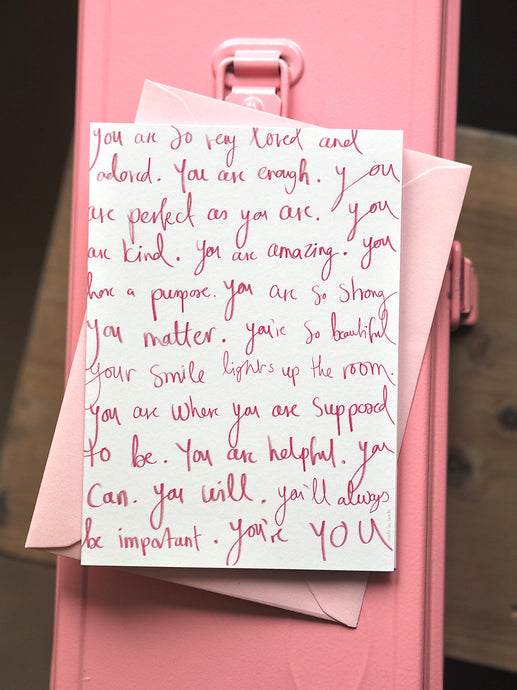 you are so very loved and
adored. You are enough. you
are perfect as you are. you
are kind. you are amazing. you
have a purpose. you are so strong
you matter. you're so beautiful
your smile lights up the room.
you are where you are supposed
to be. You are helpful. you
can. you will. you'll always
be important. you're YOU